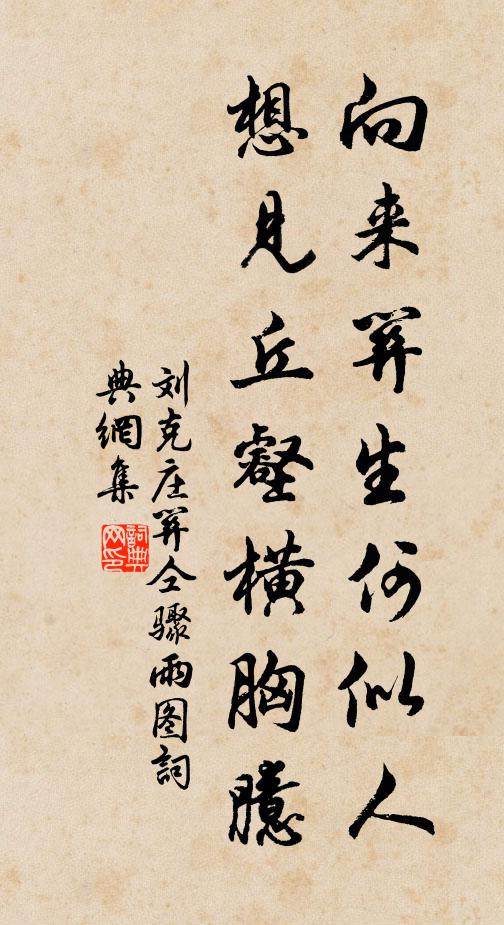 向来笄生何似人
想见丘壑横胸臆
刘克庄笄仝骤雨图詞
典網集
詞典網印